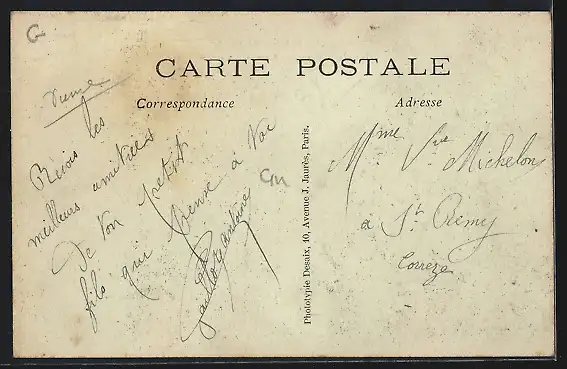 G
CARTE POSTALE
Correspondance
Adresse
Vienne
Reçois les
meilleurs amitiées
de ton petit
fils qui pense a toi
Antoine
Cm
Photolypie Desaix, 40, Avenue J. Jaurès, Paris.
Mme Vve Michelon
a St Rémy
Corrèze